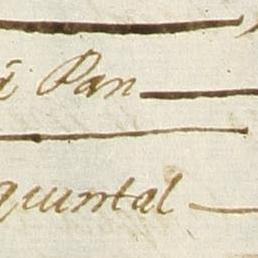 i Pan
quintal